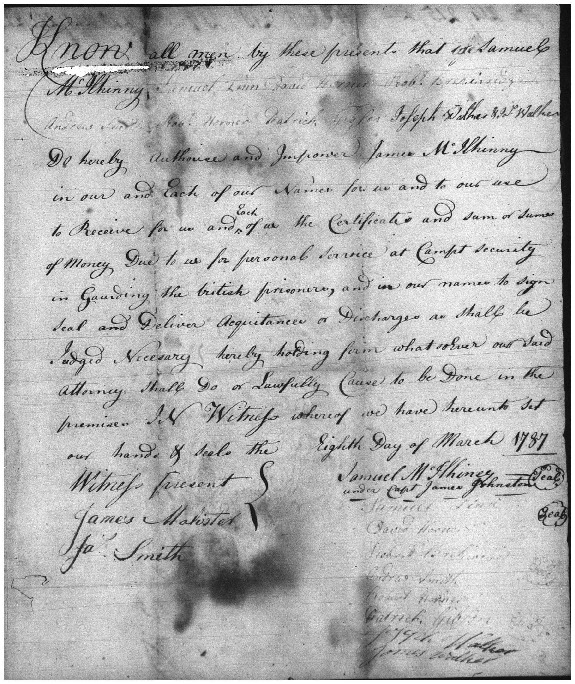 Know all men by these presents that we Samuel
McIlhinny Samuel
Andrew Patrick Joseph Walker & Walker
Do hereby Authorise and Impower James McIlhinny
in our and Each of our Names for us and to our use
to Receive for us and Each of us the Certificates and sum or sums
of Money Due to us for personal Service at Campt security
in Gaurding the british prisoners, and in our names to sign
seal and Deliver Acquitances or Discharges as shall be
Judged Nicesary hereby holding firm what soEver our said
Attorney shall Do or Lawfully Cause to be Done in the
premises IN Witness whereof we have hereunto set
our hands & seals the Eighth Day of March 1787
Witness present Samuel McIlhiney Seal
under Capt James Johnston
James Seal
Samuel
Jas Smith
David
Andrew Smith
Patrick
Joseph Walker
Walker